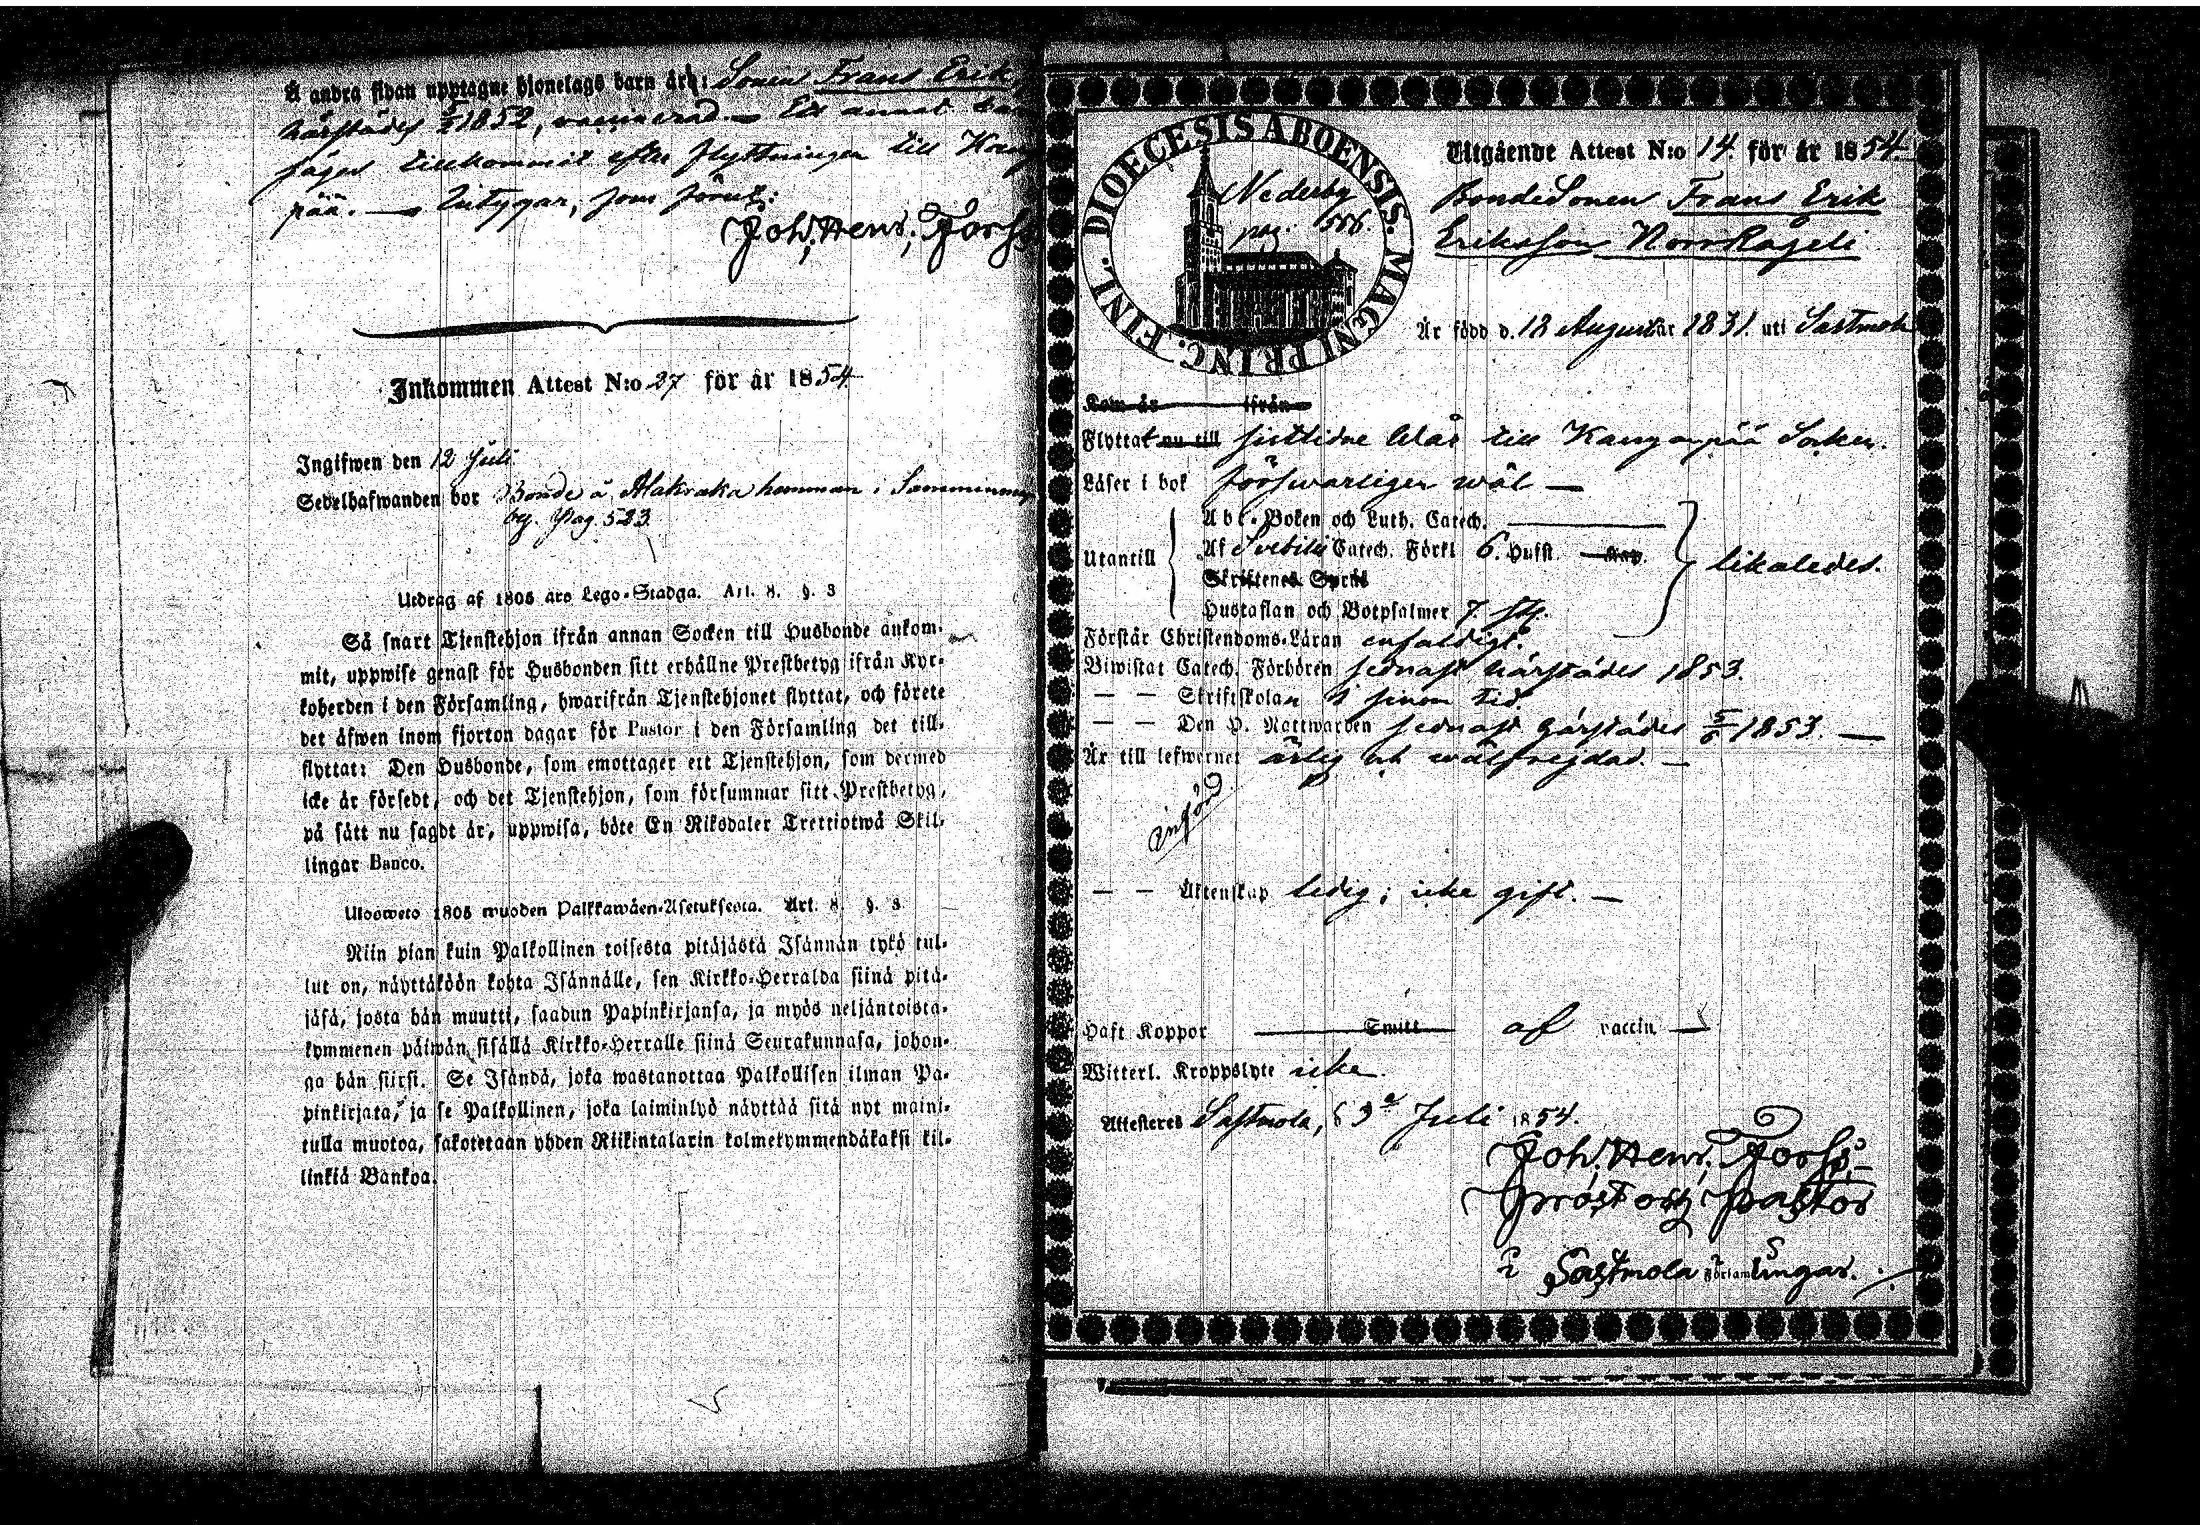 Å andra sidan upptagne hjonelags barn är: Sonen Frans Erik
härstädes 5/2 1852, vaccinerad. — Ett annat
säges tillkommit efter flyttningen till
pää. — Intygar, som förut:
Joh. Henr. Forss
Inkommen Attest N:o 27 för år 1854
Ingifwen den 12 Juli
Sedelhafwanden bor Bonde å Alakraka hemman i
by. Pag. 523.
Utdrag af 1805 års Lego-Stadga. Art. 8. §. 3
Så snart Tjenstehjon ifrån annan Socken till Husbonde ankom-
mit, uppwise genast för Husbonden sitt erhållne Prestbetyg ifrån Kyr-
koherden i den Församling, hwarifrån Tjenstehjonet flyttat, och förete
det äfwen inom fjorton dagar för Pastor i den Församling det till-
flyttat: Den Husbonde, som emottager ett Tjenstehjon, som dermed
icke är försedt, och det Tjenstehjon, som försummar sitt Prestbetyg,
på sätt nu sagdt är, uppwisa, böte En Riksdaler Trettiotwå Skil-
lingar Banco.
Ulosweto 1805 wuoden Palkkawäen-Asetuksesta. Art. 8. §. 3.
Niin pian kuin Palkollinen toisesta pitäjästä Isännän tykö tul-
lut on, näyttäköön kohta Isännälle, sen Kirkko-Herralda siinä pitä-
jäsä, josta hän muutti, saadun Papinkirjansa, ja myös neljäntoista-
kymmenen päiwän sisällä Kirkko-Herralle siinä Seurakunnasa, johon-
ga hän siirsi. Se Isändä, joka wastanottaa Palkollisen ilman Pa-
pinkirjata, ja se Palkollinen, joka laiminlyö näyttää sitä nyt maini-
tulla muotoa, sakotetaan yhden Riikintalarin kolmekymmendäkaksi kil-
linkiä Bankoa.
DIOECESIS ABOENSIS. MAGNI PRINC. FINL.
Nederby
pag. 556.
Utgående Attest N:o 14. för år 1854.
BondeSonen Frans Erik
Eriksson NorrRågeli
Är född d. 18 August år 1831. uti Sastmola
Kom år ifrån
Flyttat nu till sistlidne Wår till Kangaspää Socken.
Läser i bok försvarligen wäl —
Utantill
Abc-Boken och Luth. Catech.
Af Svebilii Catech. Förkl 6. Hufst. Kap.
Skriftenes Språk
Hustaflan och Botpsalmer 7. st.
likaledes.
Förstår Christendoms-Läran enfaldigt.
Biwistat Catech. Förhören sednast härstädes 1853.
— — Skriftskolan i sinom tid.
— — Den H. Nattwarden sednast härstädes 5/6 1853. —
Är till lefwernet ärlig och wälfrejdad. —
införd
— — Äktenskap ledig; icke gift. —
Haft Koppor Smitt af vaccin. —
Witterl. Kroppslyte icke.
Attesteres Sastmola, d 9de Juli 1854.
Joh. Henr. Forss,
Prost och Pastor
i Sastmola Församlingar.